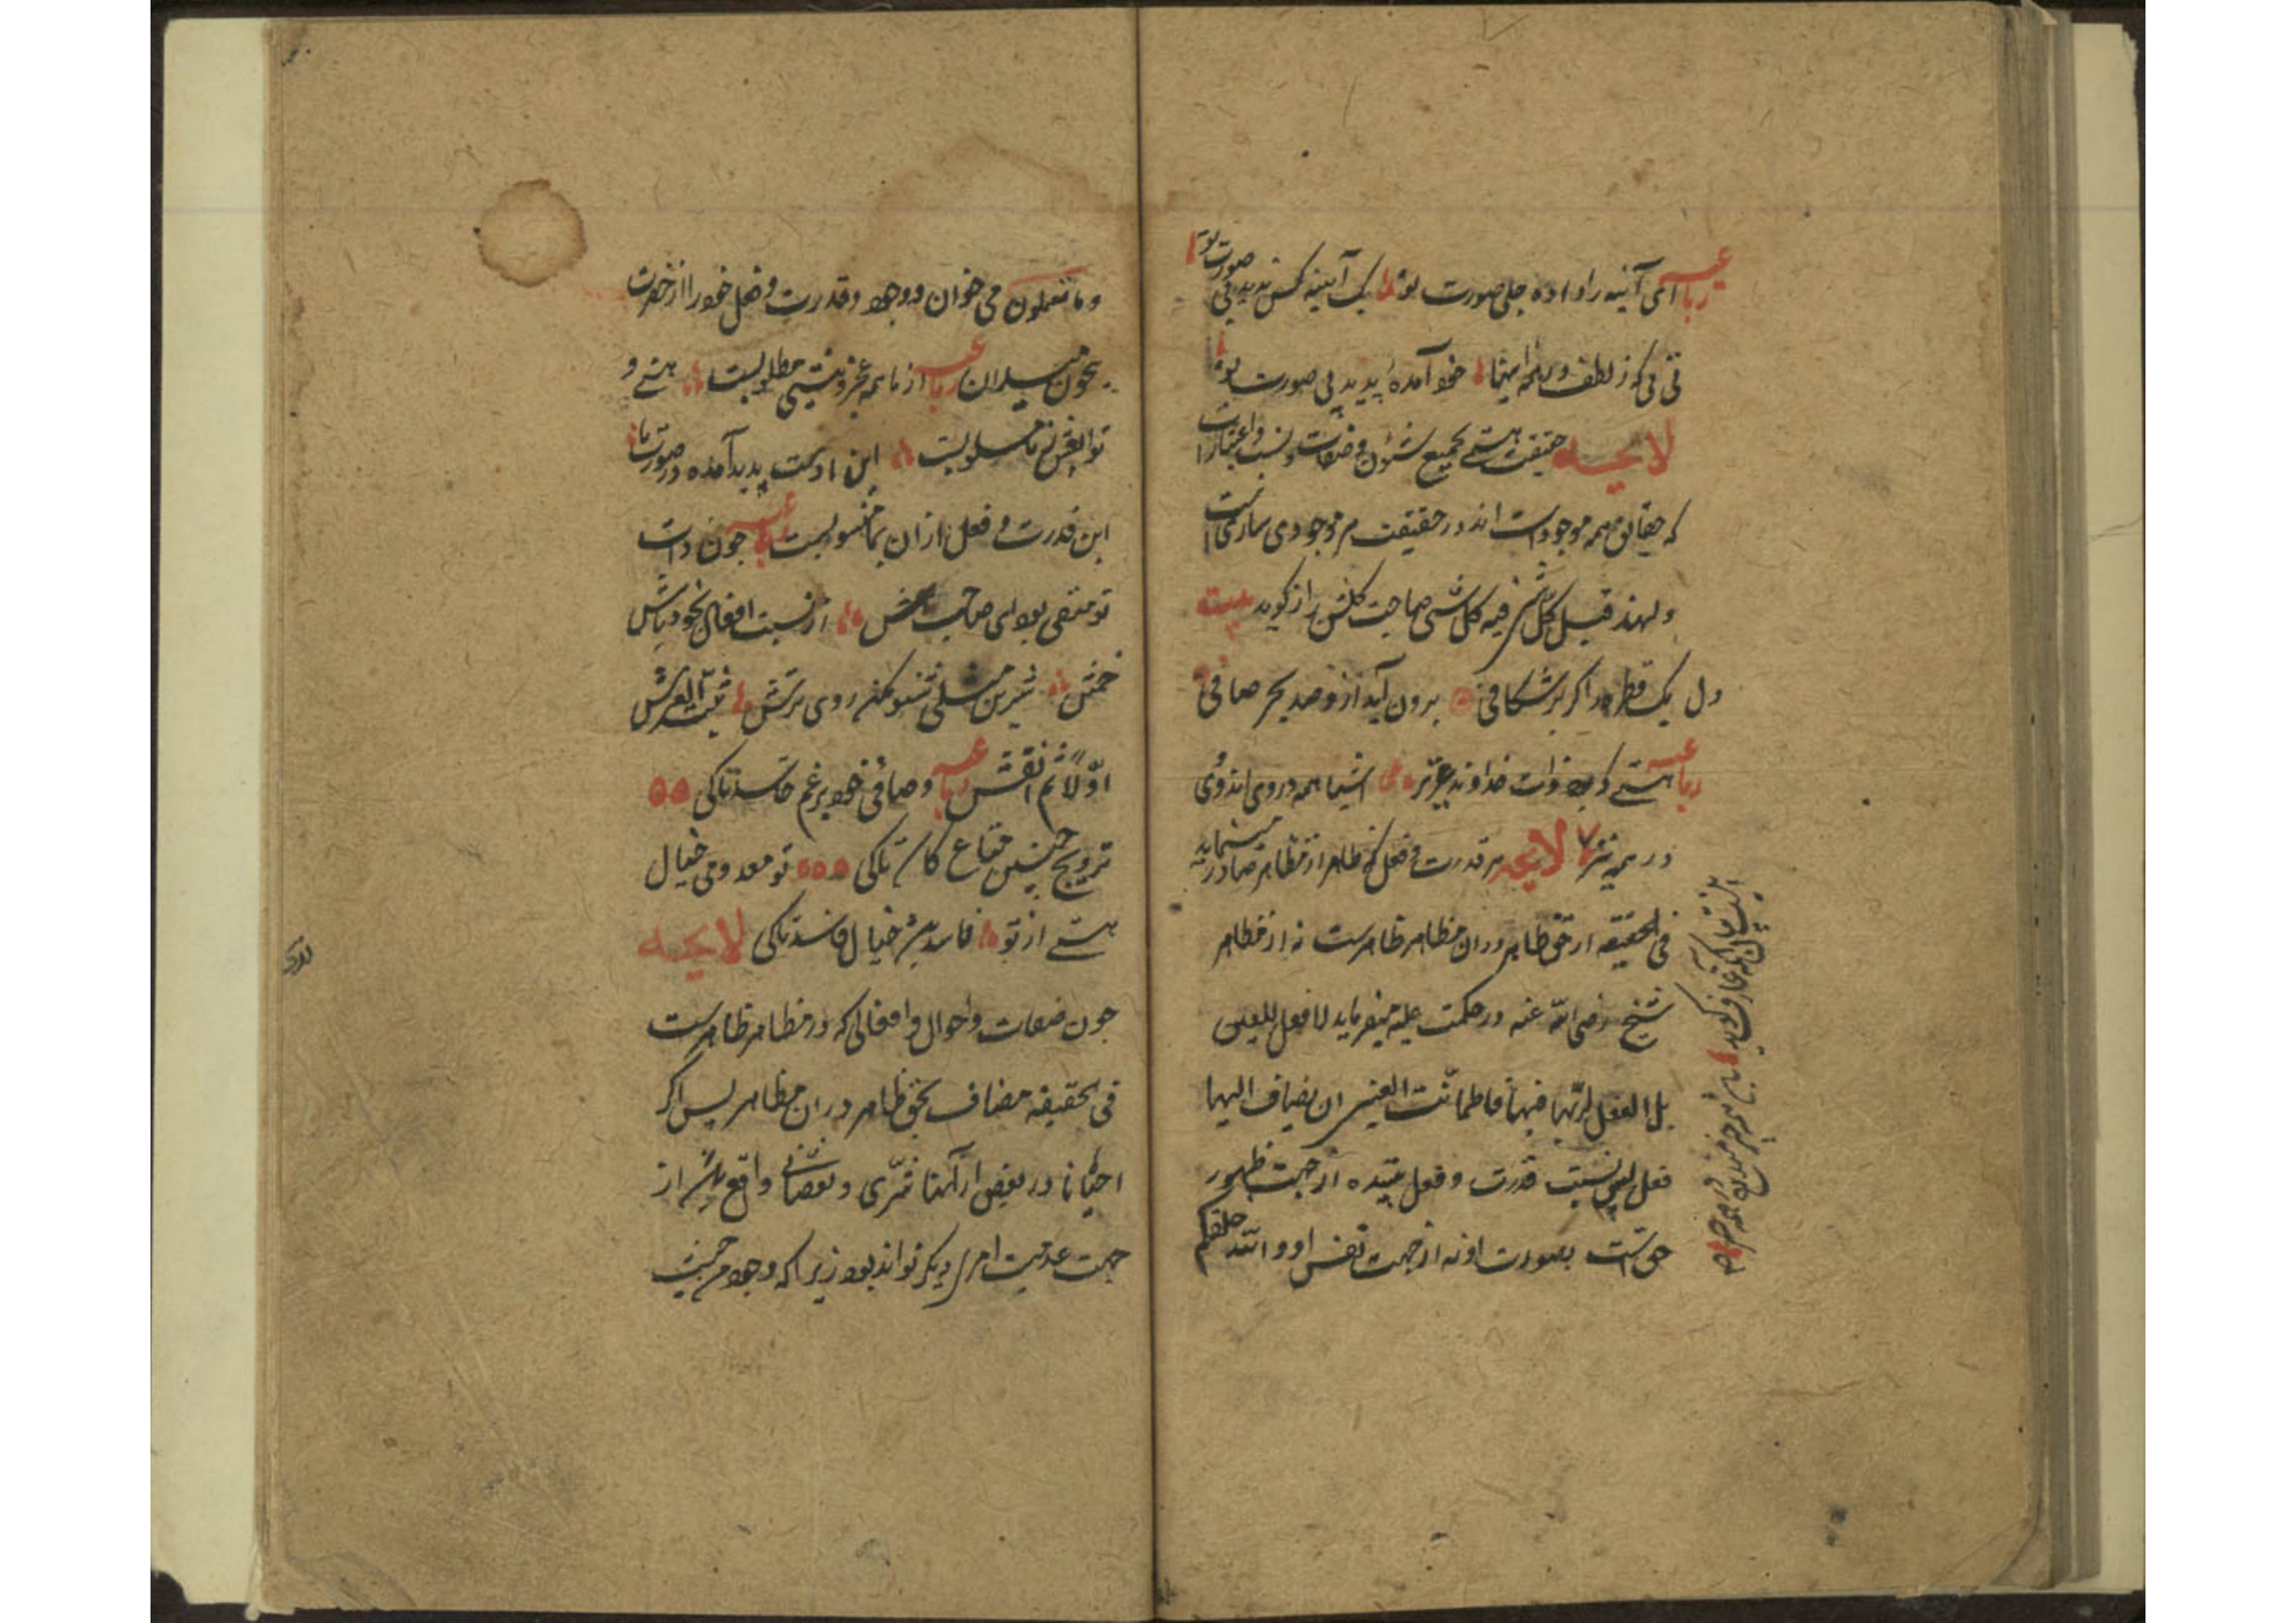 رباعیه ای آینه را داده جلی صورت تو یک آیینه کس ندید بی صورت تو
نی نی که ز لطف در همه آینها خود آمدهٔ پدید نی صورت تو
لایحه حقیقت هستی بجمیع شئون و صفات و نسب و اعتبارات
که حقایق همه موجودات اند در حقیقت هر موجودی ساری است
ولهذا قیل کل شی فیه کل شی صاحب گلشن راز گوید بیت
دل یک قطره را گر برشکافی برون آید ازو صد بحر صافی
رباعیه هستی که بود ذات خداوند عزیز اشیا همه در وی اند و وی
در همه نیز لایحه هر قدرت و فعل که ظاهر از مظاهر صادر مینماید
فی الحقیقه از حق ظاهر در ان مظاهر ظاهرست نه از مظاهر
شیخ رضی الله عنه در حکمت علیه میفرماید لا فعل للعین
بل الفعل لربها فیها فاطمانت العین ان یضاف الیها
فعل پس نسبت قدرت و فعل ببنده از جهت ظهور
حق است بصورت او نه از جهت نفس او والله خلقکم
اینست بیان آنکه عارف گوید باشد همه چیز مندرج در همه چیز
وما تعملون می خوان و وجود و قدرت و فعل خود را از حضرت
بیچون میدان رباعیه از ما همه عجز و نیستی مطلوبست هستی و
توابعش ز ما مسلوبست این اوست پدید آمده در صورت ما
این قدرت و فعل از ان بما منسوبست رباعیه چون ذات
تو منتفی بود ای صاحب هش از نسبت افعال بخود باش
خمش شیرین مثلی شنو مکن روی ترش ثبت العرش
اولا ثم انقش رباعیه وصافی خود برغم حاسد تا کی
ترویج چنین متاع کاسد تا کی تو معدومی خیال
هستی از تو فاسد باشد خیال فاسد تا کی لایحه
چون صفات و احوال و افعالی که در مظاهر ظاهرست
فی الحقیقه مضاف بحق ظاهر در ان مظاهر پس اگر
احیانا در بعضی از آنها شری و نقصانی واقع باشد از
جهت عدمیت امری دیگر تواند بود زیرا که وجود من حیث